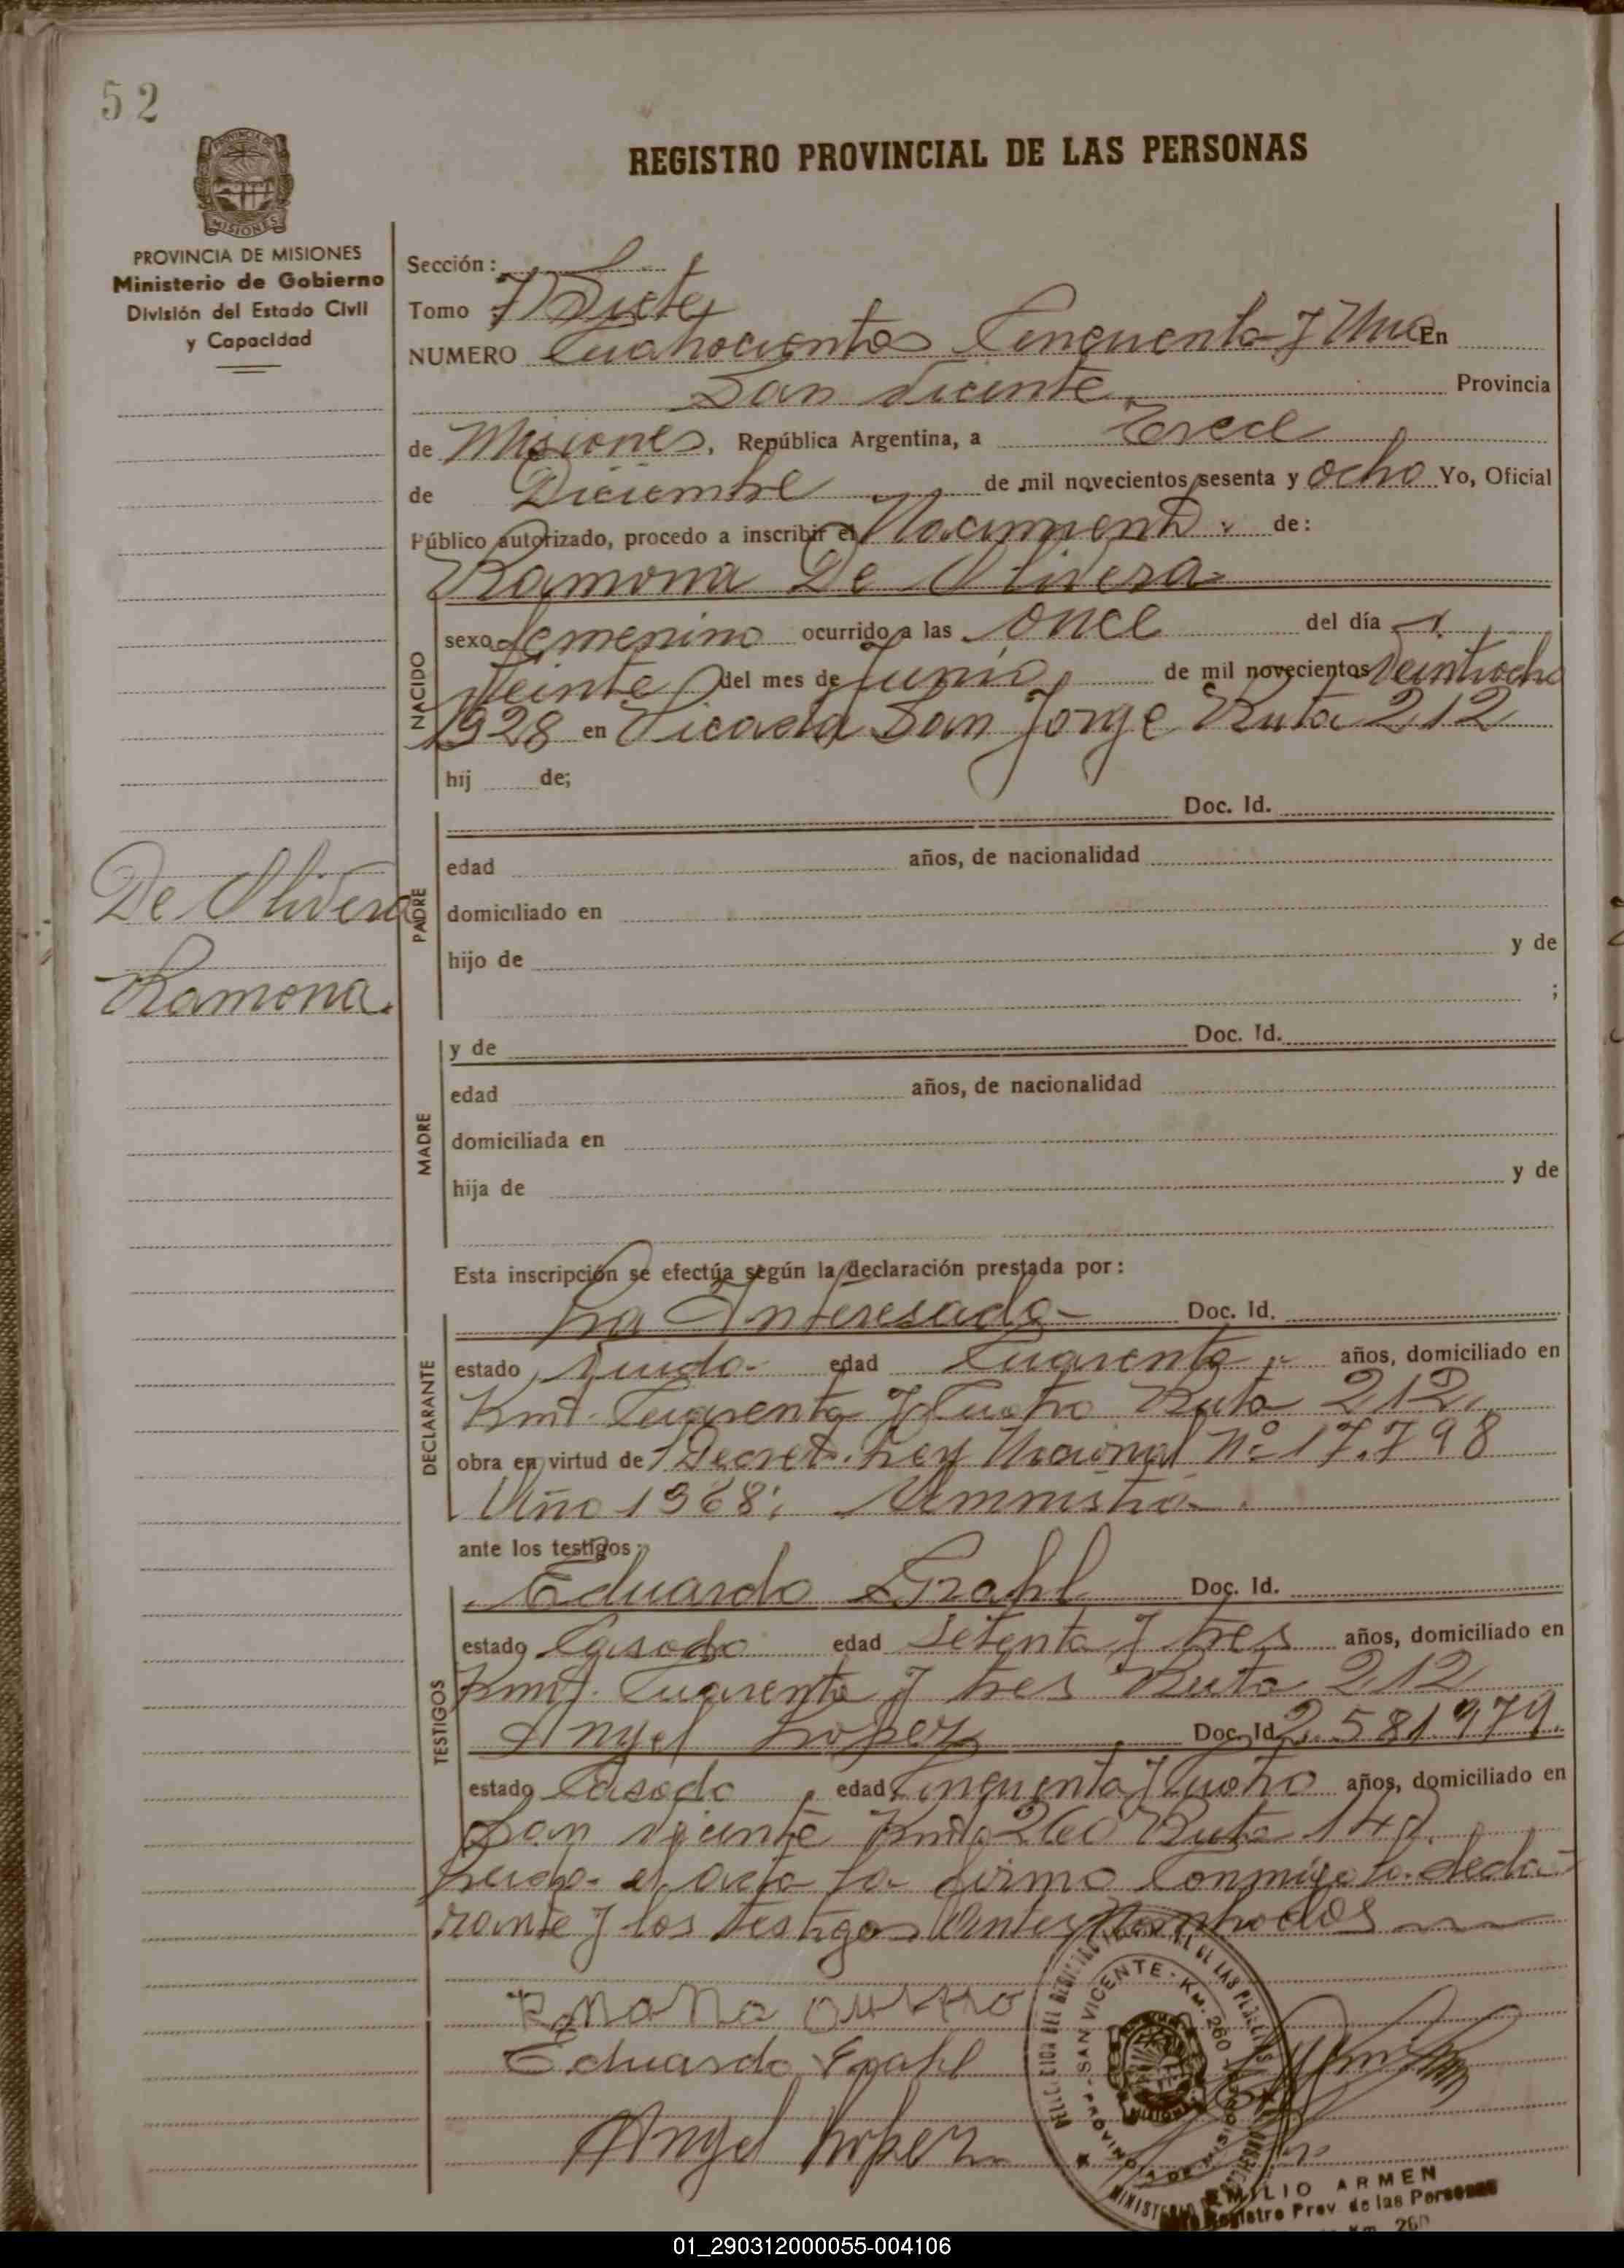 52
REGISTRO PROVINCIAL DE LAS PERSONAS
PROVINCIA DE MISIONES
MISIONES
PROVINCIA DE MISIONES
Ministerio de Gobierno
División del Estado Civil
y Capacidad
Sección:
Tomo 7 Siete
NUMERO Cuatrocientos Cincuenta y Uno En
San Vicente Provincia
de Misiones, República Argentina, a Trece
de Diciembre de mil novecientos sesenta y ocho Yo, Oficial
Público autorizado, procedo a inscribir el Nacimiento de:
Ramona De Olivera
NACIDO
sexo femenino ocurrido a las once del día
Veinte del mes de Junio de mil novecientos Veintiocho
1928 en Picada San Jorge Ruta 212
hij de;
Doc. Id.
PADRE
edad años, de nacionalidad
De Olivera
domiciliado en
hijo de y de
Ramona.
;
MADRE
y de Doc. Id.
edad años, de nacionalidad
domiciliada en
hija de y de
Esta inscripción se efectúa según la declaración prestada por:
La Interesada Doc. Id.
DECLARANTE
estado Viuda edad Cuarenta años, domiciliado en
Kmt. Cuarenta y Cuatro Ruta 212
obra en virtud de Decreto Ley Nacional Nº 17.798
Año 1968; Amnistia.
ante los testigos:
Eduardo Grahl Doc. Id.
TESTIGOS
estado Casado edad Setenta y tres años, domiciliado en
Kmt. Cuarenta y tres Ruta 212
Angel Lopez Doc. Id. 2.581979
estado Casado, edad Cincuenta y Cuatro años, domiciliado en
San Vicente Kmt 260 Ruta 14
Leida el acta la firma Conmigo la decla-
rante y los testigos Antes Nombrados
Eduardo Grahl
Angel Lopez
SAN VICENTE - KM. 260
PROVINCIA DE MISIONES
EMILIO ARMEN
Registro Prov. de las Personas
Km. 260
01_290312000055-004106